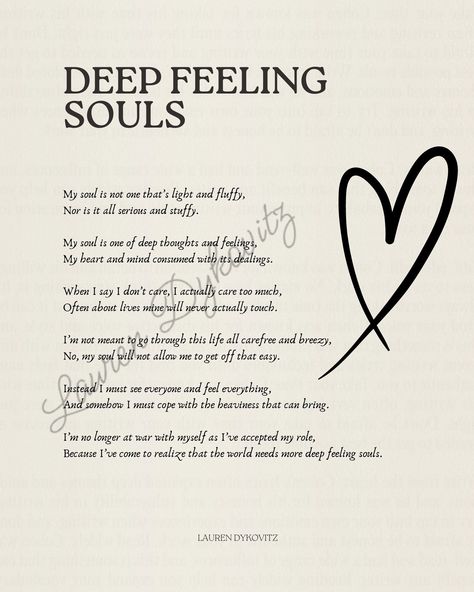 DEEP FEELING
SOULS
My soul is not one that's light and fluffy,
Nor is it all serious and stuffy.
My soul is one of deep thoughts and feelings,
My heart and mind consumed with its dealings.
When I say I don't care, I actually care too much,
Often about lives mine will never actually touch.
I'm not meant to go through this life all carefree and breezy,
No, my soul will not allow me to get off that easy.
Instead I must see everyone and feel everything,
And somehow I must cope with the heaviness that can bring.
I'm no longer at war with myself as I've accepted my role,
Because I've come to realize that the world needs more deep feeling souls.
Lauren Dykovitz
LAUREN DYKOVITZ